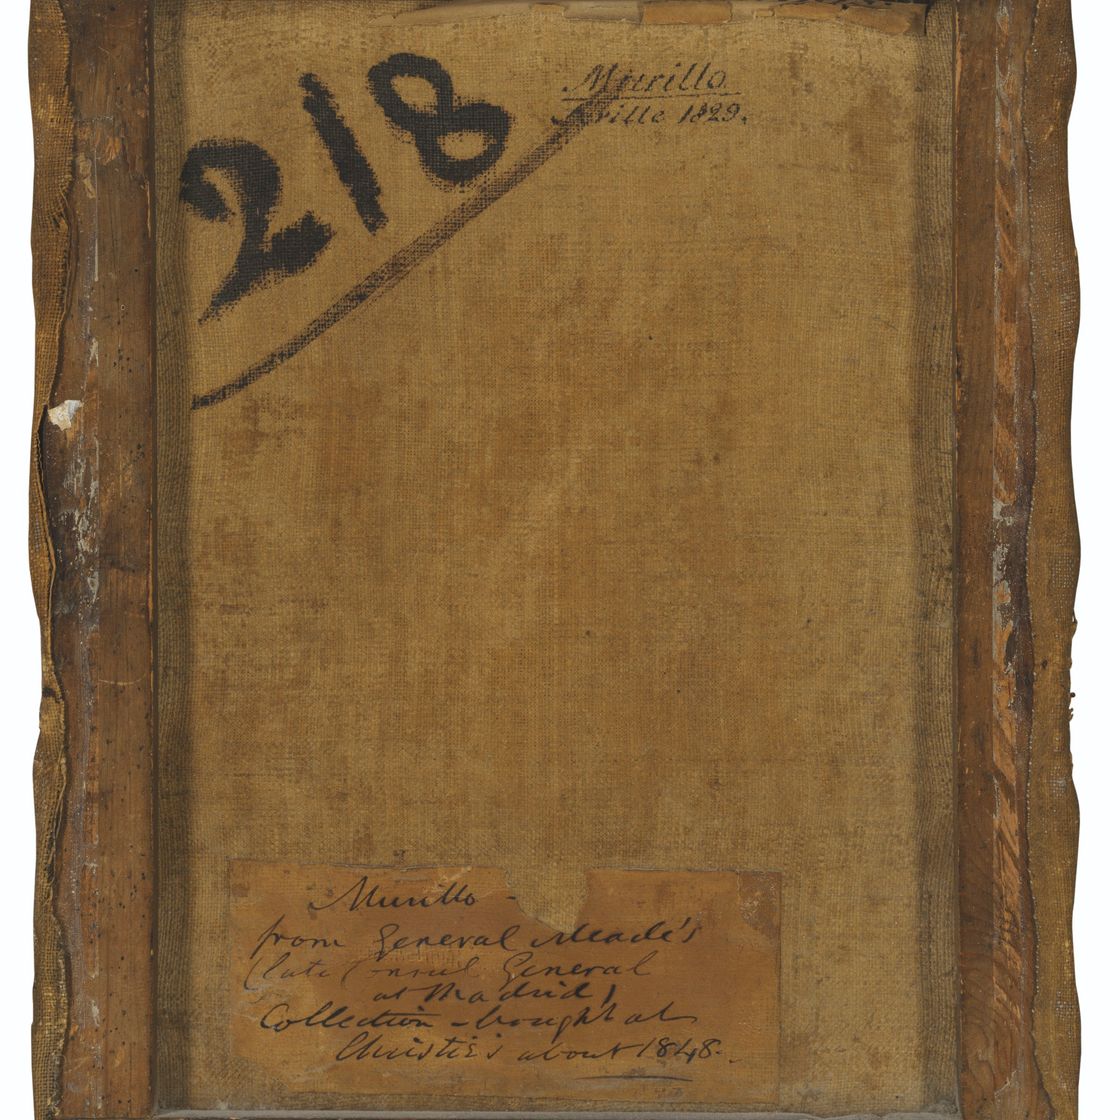 218
Murillo
Seville 1829.
Murillo -
from General Meade's
(late Consul General
at Madrid)
Collection - bought at
Christie's about 1848.